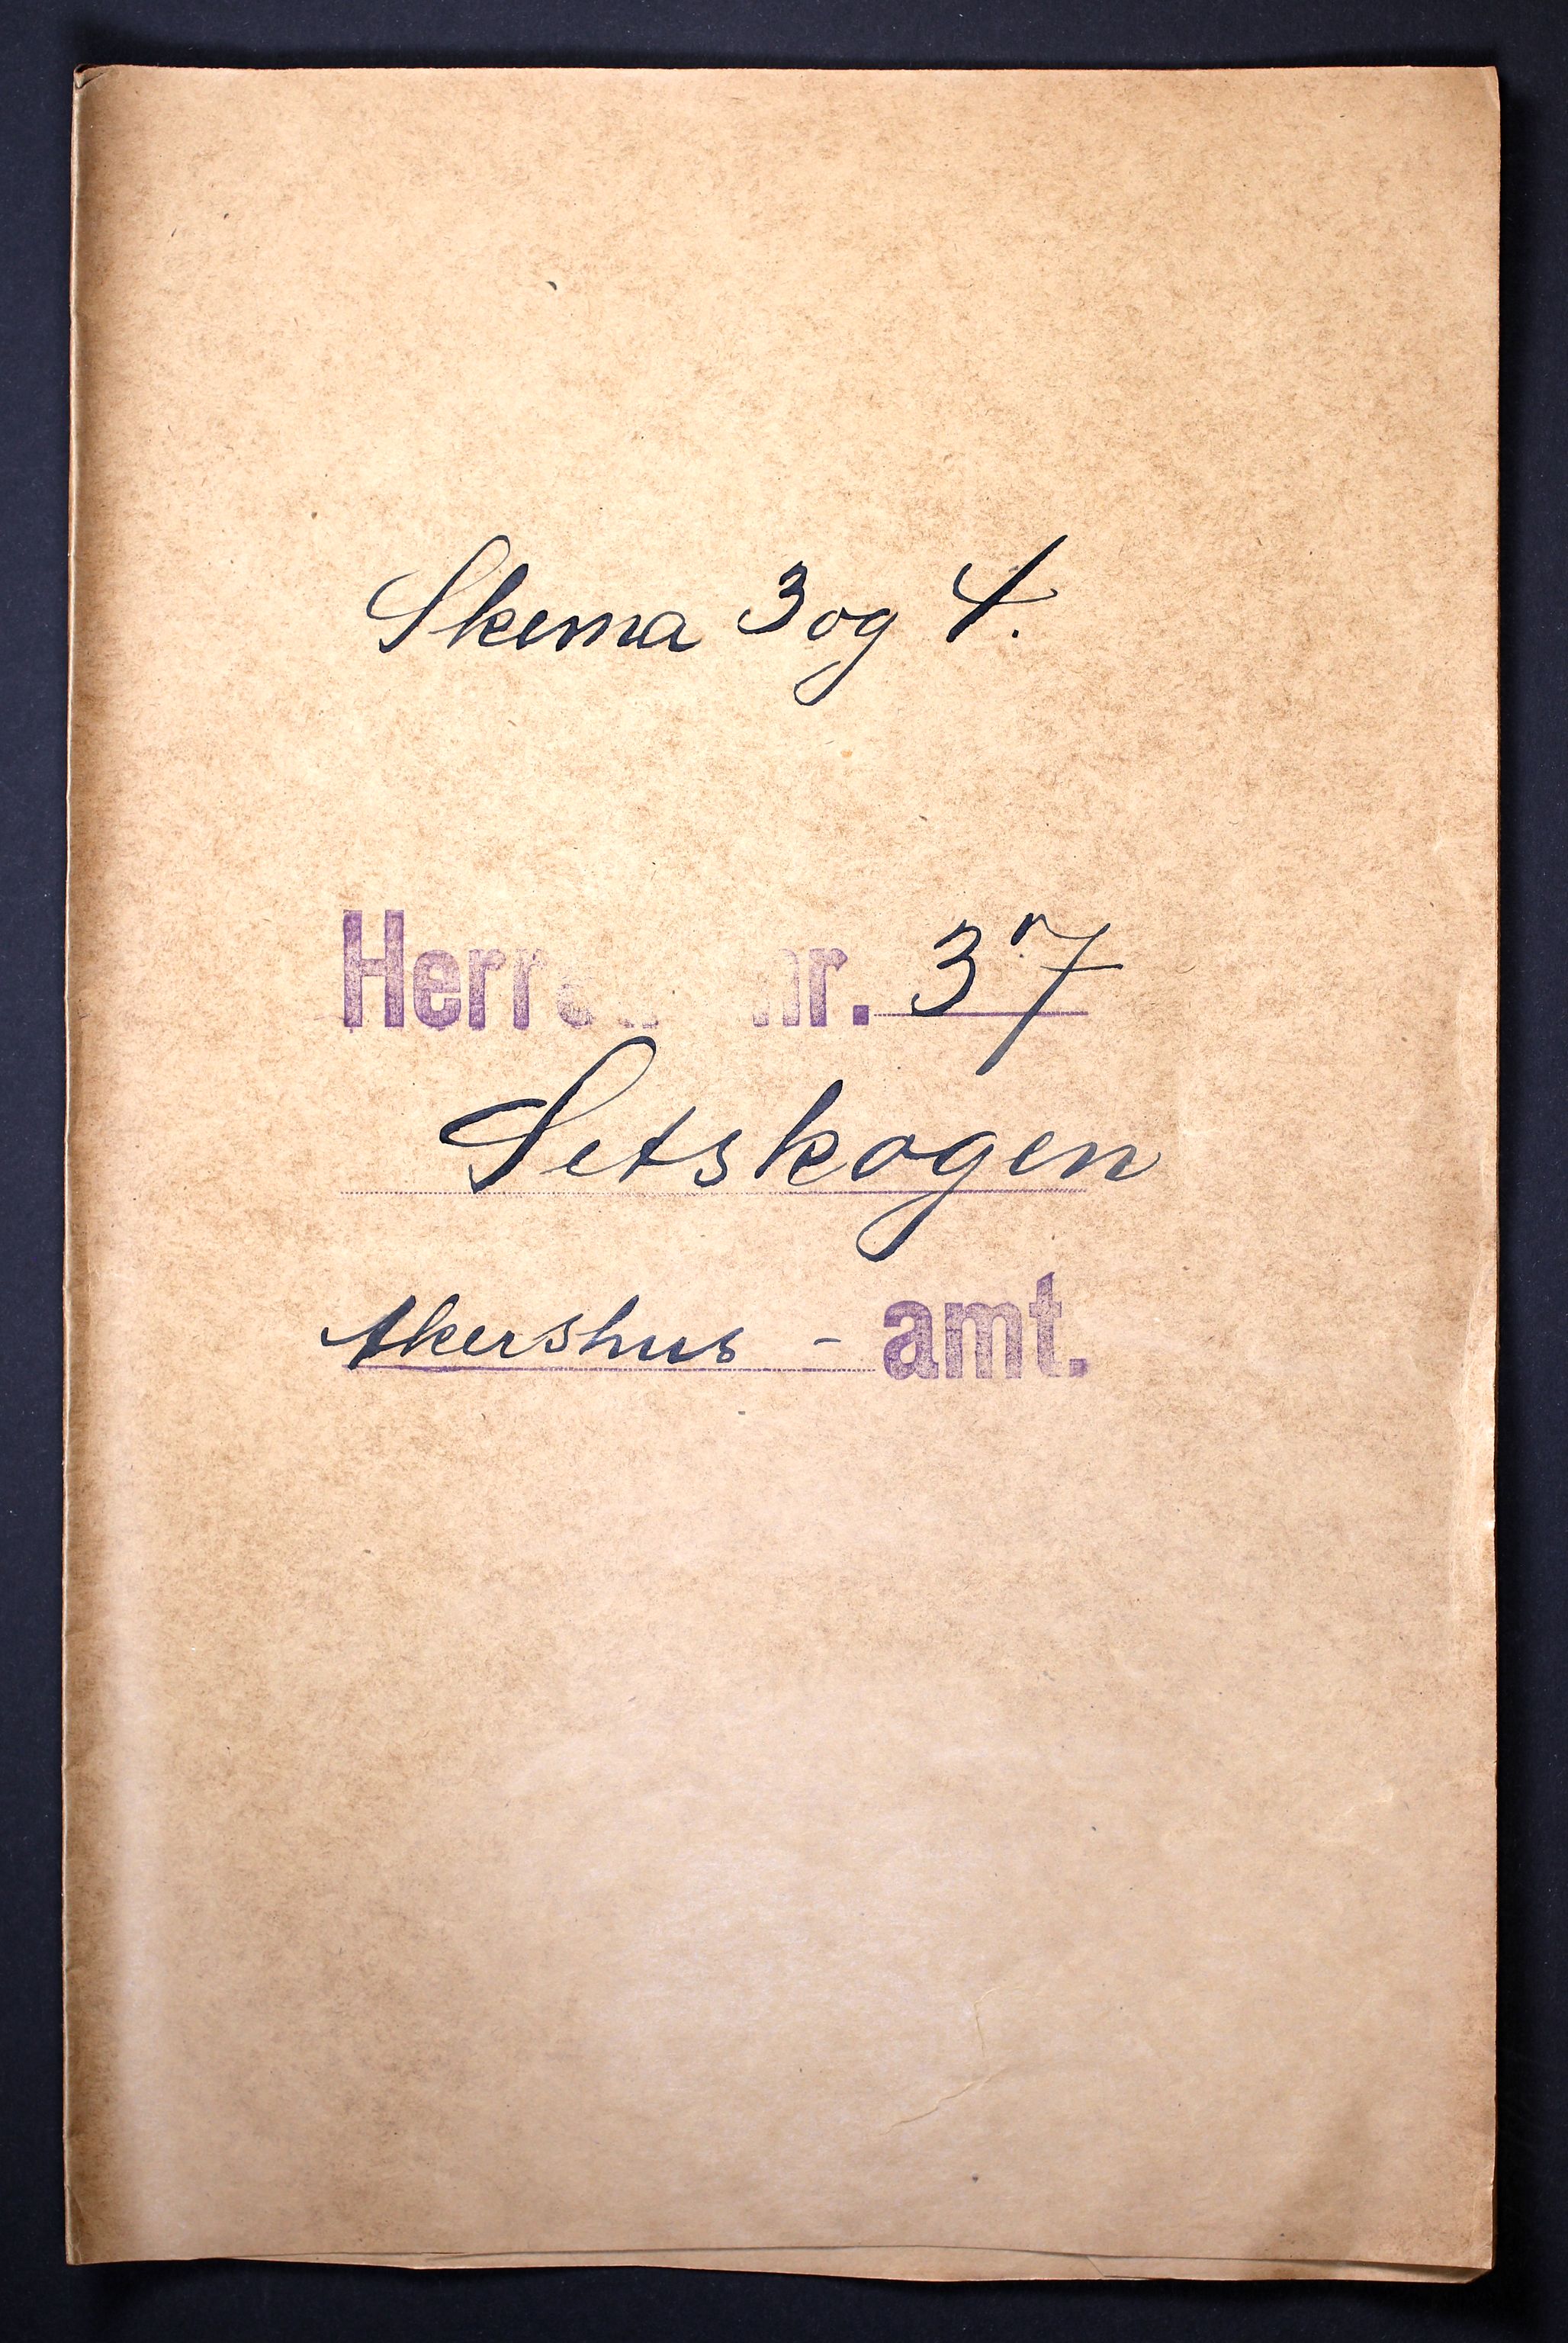 Skema 3 og 4.
Herreds nr. 37
Setskogen
Akershus - amt.